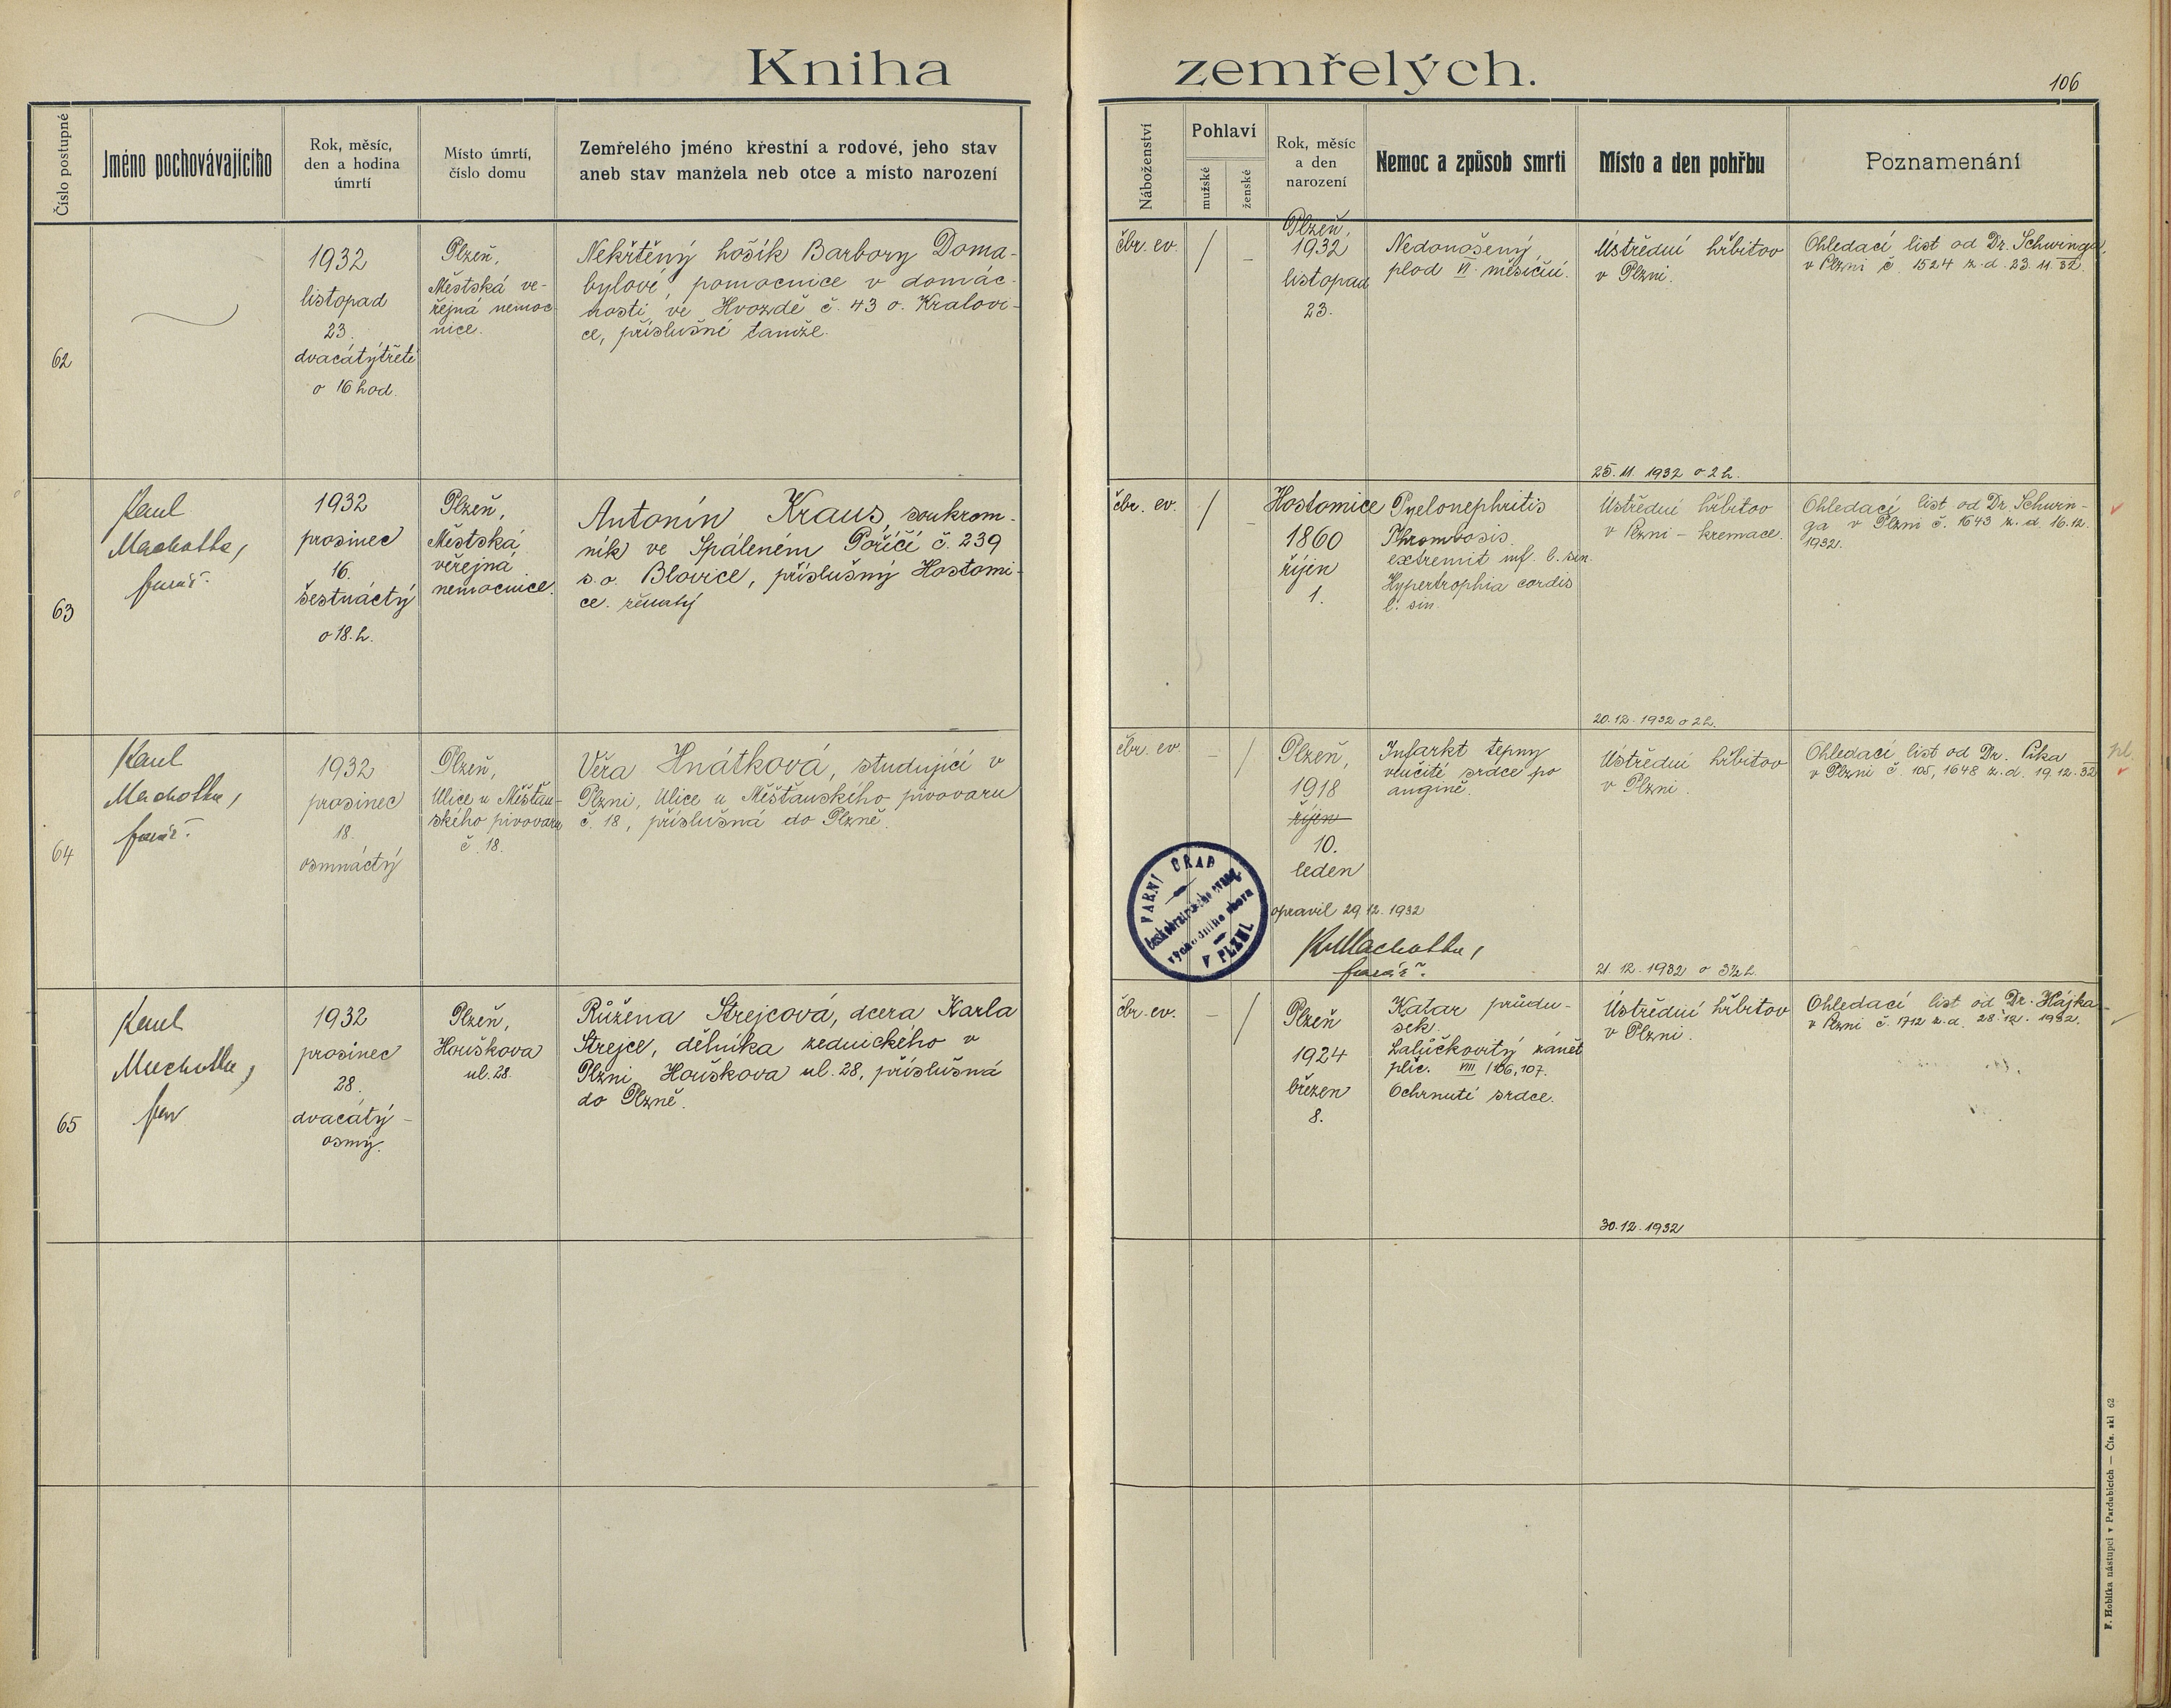 Kniha zemřelých.
106
Číslo postupné
Jméno pochovávajícího
Rok, měsíc,
den a hodina
úmrtí
Místo úmrtí,
číslo domu
Zemřelého jméno křestní a rodové, jeho stav
aneb stav manžela neb otce a místo narození
Náboženství
Pohlaví
mužské
ženské
Rok, měsíc
a den
narození
Nemoc a způsob smrti
Místo a den pohřbu
Poznamenání
62
1932
listopad
23.
dvacátýtřetí
o 16 hod.
Plzeň,
Městská ve-
řejná nemoc-
nice.
Nekřtěný hošík Barbory Doma-
bylové, pomocnice v domác-
nosti ve Hvozdě č. 43 o. Kralovi-
ce, příslušné tamže.
čbr. ev.
/
–
Plzeň,
1932
listopad
23.
Nedonošený
plod VI. měsíční.
Ústřední hřbitov
v Plzni.
25.11. 1932 o 2 h.
Ohledací list od Dr. Schwinga
v Plzni č. 1524 z. d. 23. 11. 32.
63
Karel
Machotka,
farář.
1932
prosinec
16.
šestnáctý
o 18. h.
Plzeň,
Městská
věřejná
nemocnice.
Antonín Kraus, soukrom-
ník ve Spáleném Poříčí č. 239
s. o. Blovice, příslušný Hostomi-
ce. ženatý
čbr. ev.
/
–
Hostomice
1860
říjen
1.
Pyelonephritis
Thrombosis
extremit inf. l. sin.
Hypertrophia cordis
l. sin.
Ústřední hřbitov
v Plzni – kremace.
20.12. 1932 o 2 h.
Ohledací list od Dr. Schwin-
ga v Plzni č. 1643 z. d. 16.12.
1932.
64
Karel
Machotka,
farář.
1932
prosinec
18.
osmnáctý
Plzeň,
Ulice u Měšťan-
ského pivovaru
č. 18.
Věra Hnátková, studující v
Plzni, Ulice u Měšťanského pivovaru
č. 18, příslušná do Plzně.
čbr. ev.
–
/
Plzeň,
1918
říjen
10.
leden
opravil 29.12. 1932
K. Machotka,
farář.
Infarkt tepny
věnčité srdce po
angině.
Ústřední hřbitov
v Plzni.
21. 12. 1932 o 3½ h.
Ohledací list od Dr. Pika
v Plzni č. 105, 1648 z. d. 19. 12. 32
pl.
FARNÍ ÚŘAD
českobratrského evang.
V PLZNI
65
Karel
Machotka,
far
1932
prosinec
28.
dvacátý-
osmý.
Plzeň,
Houškova
ul. 28.
Růžena Strejcová, dcera Karla
Strejce, dělníka zednického v
Plzni, Houškova ul. 28, příslušná
do Plzně.
čbr. ev.
–
/
Plzeň
1924
březen
8.
Katar průdu-
šek.
Lalůčkovitý zánět
plic. VIII / 106, 107.
Ochrnutí srdce.
Ústřední hřbitov
v Plzni.
30.12. 1932
Ohledací list od Dr. Hájka
v Plzni č. 1712 z. d. 28. 12. 1932.
F. Hoblíka nástupci v Pardubicích — Čís. skl 62